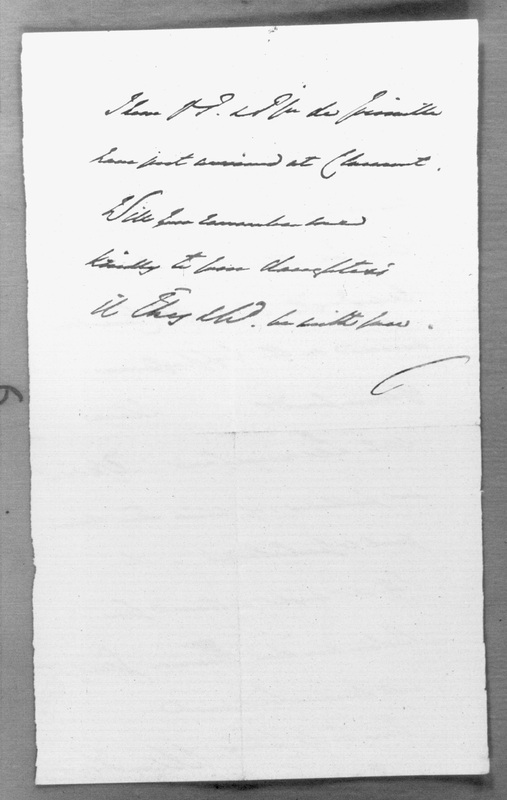 P. & Pss de Joinville
have just arrived at Claremont.
Will you remember me
kindly to your daughters
if they shd. be with you.